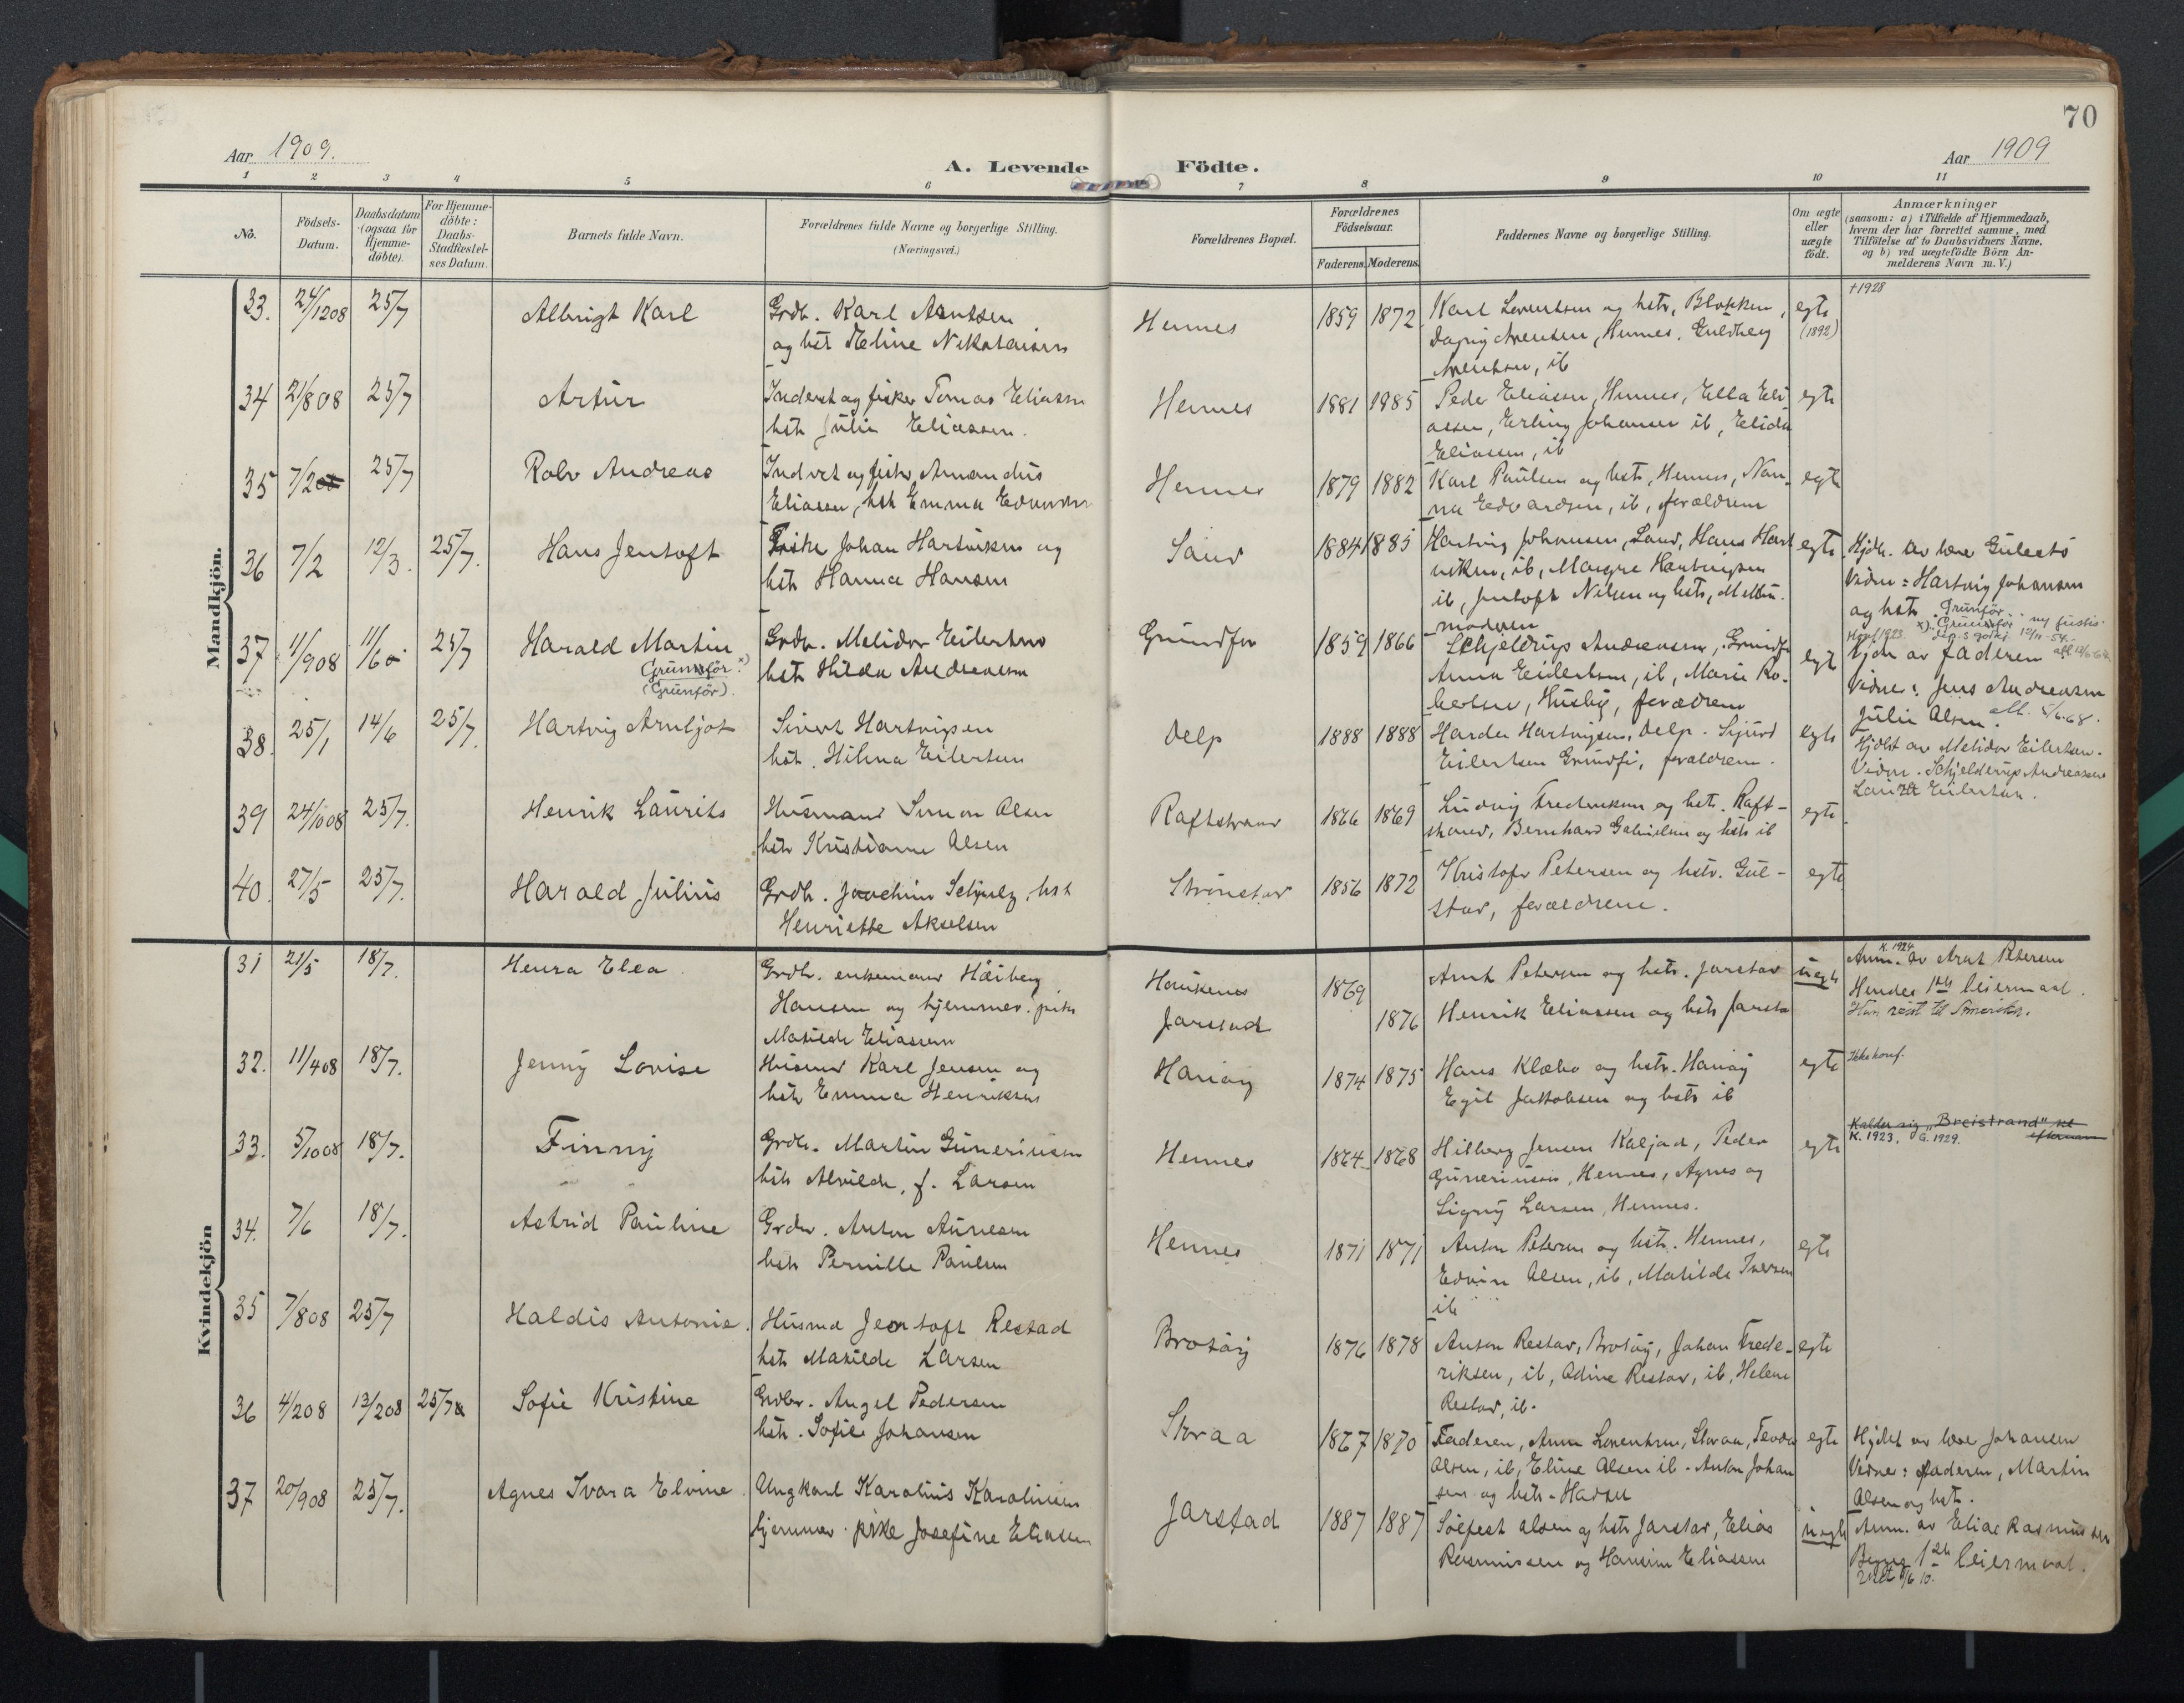 70
Aar 1909.
A. Levende Födte.
Aar 1909
1 2 3 4 5 6 7 8 9 10 11
No.
Födsels-Datum.
Daabsdatum (ogsaa for Hjemme-döbte).
For Hjemme-döbte: Daabs-Stadfæstel-ses Datum.
Barnets fulde Navn.
Forældrenes fulde Navne og borgerlige Stilling.
(Næringsvei.)
Forældrenes Bopæl.
Forældrenes Födselsaar.
Faderens. Moderens.
Faddernes Navne og borgerlige Stilling.
Om ægte eller uægte födt.
Anmærkninger
(saasom: a) i Tilfælde af Hjemmedaab, hvem der har forrettet samme, med Tilföielse af to Daabsvidners Navne, og b) ved uægtefödte Börn An-melderens Navn m. V.)
Mandkjön.
33. 24/1208 25/7 Albrigt Karl
Grdb. Karl
og hst Nikolaisen
Hennes 1859 1872
Karl Lorentsen og hstr, Blokken,
Hennes, Guldberg
ib
egte
(1892)
†1928
34 21/808 25/7 Artur
Inderst og fisker Tomas Eliassen
hstr Julie Eliassen.
Hennes 1881 1985
Peder Eliassen, Hennes, Ella Eli
assen, Erling Johansen ib, Elida
Eliassen, ib
egte
35 7/2 25/7 Rolv Andreas
Indrst og fisker Amandus
Eliassen, hst Emma
Hennes 1879 1882
Karl Paulsen og hstr, Hennes, Nan-
na Edvardsen, ib, forældrene
egte
36 7/2 12/3. 25/7. Hans Jentoft
Fisker Johan Hartviksen og
hstr Hanna Hansen
Sand 1884 1885
Hartvig Johansen, Sand, Hans Hart
viksen, ib, Margre Hartvigsen
ib, Jentoft Nilsen og hstr,
moderen
egte
Hjdb. av
Vidner: Hartvig Johansen
og hstr
37 11/908 11/6 25/7 Harald Martin
Grunnför x)
(Grünför).
Grdbr. Melidor Eilertsen
hstr Hilda Andreassen
Grundfor 1859 1866
Schjeldrup Andreassen,
Anna Eilertsen, ib, Marie Ro-
bertsen, Husby, forældrene
egte
Grünför
Konf 1923.
Hjdb av faderen
Vidner: Jens Andreassen
Julie Olsen. att. 5/6-68.
38. 25/1 14/6 25/7. Hartvig Arnljot
Sivert Hartvigsen
hst. Hilma Eilertsen
Delp 1888 1888
Hartvigsen, Delp. Sigurd
Eilertsen forældrene.
egte
Hjdbt av Melidor Eilertsen.
Vidner. Schjelderup Andreassen
Eilertsen.
39 24/1008 25/7. Henrik Laurits
Husmand Simon Olsen
hstr Kristianne Olsen
Raftstrand 1866 1869
Ludvig Fredriksen og hstr. Raft-
strand, Bernhard Gabrielsen og hstr ib
egte.
40. 27/5 25/7. Harald Julius
Grdb. Joachim hst
Henriette Akselsen
Strönstad 1856 1872
Kristofer Petersen og hstr. Gul-
stad, forældrene.
egte
Kvindekjön
31 21/5 18/7. Henra Elea
Grdb. enkemand Hauberg
Hansen og hjemmev. pike
Matilde Eliassen
Haukenes 1869
Jarstad 1876
Arnt Petersen og hstr. Jarstad
Henrik Eliassen og hstr Jarstad
uegte
K. 1924
Anm. av Arnt Petersen
Hendes 1ste leiermaal.
Han reist til Amerika.
32. 11/408 18/7. Jenny Lovise
Husmd Karl Jensen og
hstr Emma Henriksen
Hanøy 1874 1875
Hans Klæbo og hstr. Hanøy
Egil Jakobsen og hstr ib
egte
Ikke konf.
33. 5/1008 18/7. Finny
Grdb. Martin Gunneriussen
hstr Alvilde, f. Larsen
Hennes 1864 1868
Hilberg Jensen Kaljord, Peder
Gunneriussen, Hennes, Agnes og
Signy Larsen, Hennes.
egte
Kalder sig "Breistrand" til efternavn
K. 1923. G. 1929.
34. 7/6 18/7. Astrid Pauline
Grdbr. Anton
hstr Pernille Paulsen
Hennes 1871 1871
Anton Petersen og hstr. Hennes,
Edvin Olsen, ib, Matilde Iversen
ib
egte
35 7/808 25/7 Haldis Antonie.
Husmd Jentoft Restad
hstr Matilde Larsen
Brotøy 1876 1878
Anton Restad, Brotøy, Johan Frede-
riksen, ib, Odine Restad, ib, Helene
Restad, ib.
egte
36 4/208 13/208 25/7 Sofie Kristine
Grdbr. Angel Pedersen
hstr. Sofie Johansen
Storaa 1867 1870
Faderen, Anna Lorentsen, Storaa,
Olsen, ib, Eline Olsen ib - Anton Johan
sen og hstr -
egte
Hjdbt av Johansen
Vidner: faderen, Martin
Olsen og hst.
37 20/908 25/7. Agnes Ivara Elvine
Ungkarl Karolius Karoliussen
hjemmev. pike Josefine Eliassen
Jarstad 1887 1887
Solfest Olsen og hstr Jarstad, Elias
Rasmussen og Hansine Eliassen
uegte
Anm. av Elias Rasmussen
Begges 1ste leiermaal.